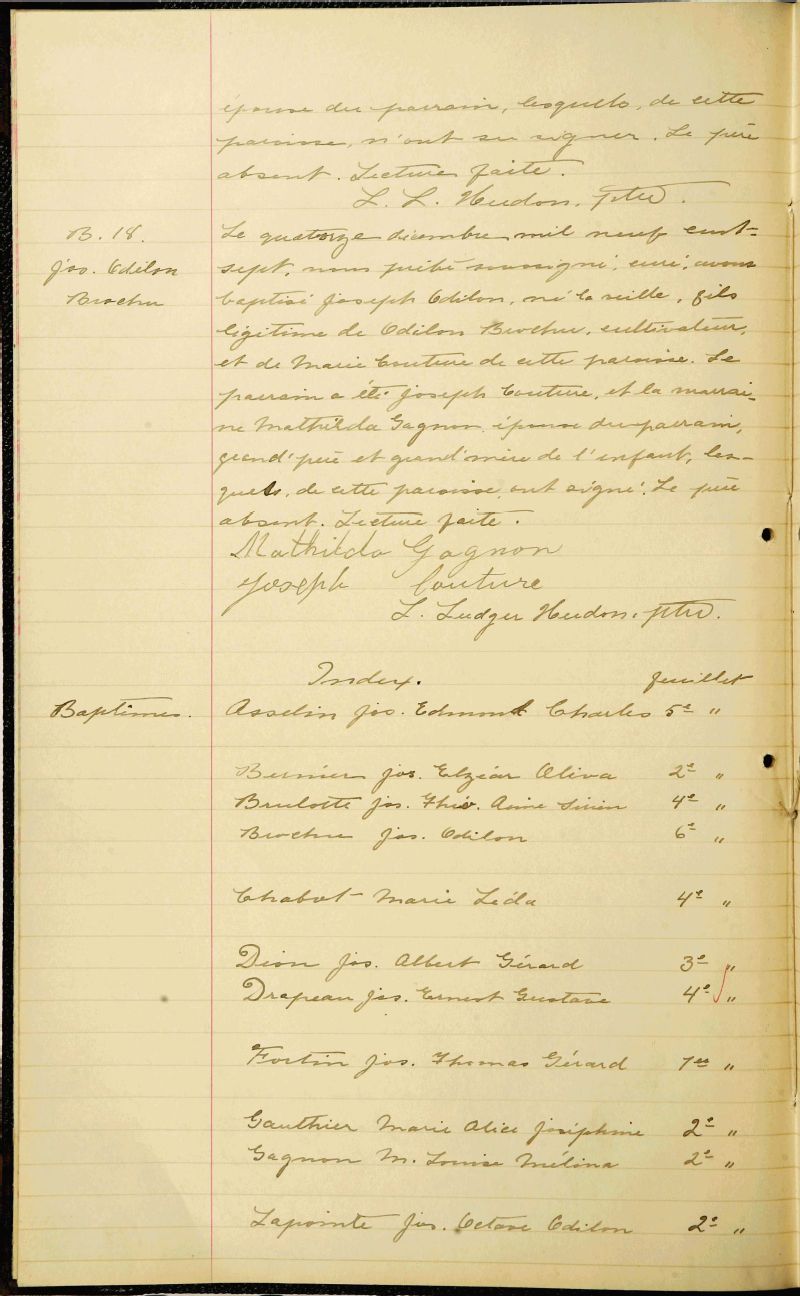 épouse du parrain, lesquels, de cette
paroisse, n'ont su signer. Le père
absent. Lecture faite.
L. L. Hudon, ptre.
B. 18.
Jos. Odilon
Brochu
Le quatorze décembre mil neuf cent-
sept, nous prêtre soussigné, curé, avons
baptisé Joseph Odilon, né la veille, fils
légitime de Odilon Brochu, cultivateur,
et de Marie Couture de cette paroisse. Le
parrain a été Joseph Couture, et la marrai-
ne Mathilda Gagnon épouse du parrain,
grand'père et grand'mère de l'enfant, les-
quels, de cette paroisse, ont signé. Le père
absent. Lecture faite.
Mathilda Gagnon
Joseph Couture
L. Ludger Hudon, ptre.
Index. feuillet
Baptêmes. Asselin Jos. Edmond Charles 5e "
Bernier Jos. Elzéar Oliva 2e "
Brulotte Jos. Aimé 4e "
Brochu Jos. Odilon 6e "
Chabot Marie Léda 4e "
Dion Jos. Albert Gérard 3e "
Drapeau Jos. Ernest Gustave 4e "
Fortin Jos. Thomas Gérard 1er "
Gauthier Marie Alice Joséphine 2e "
Gagnon M. Louise Mélina 2e "
Lapointe Jos. Octave Odilon 2e "